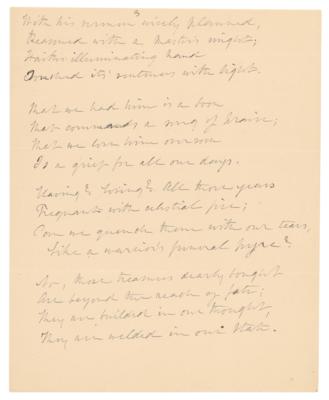 With his sermon wisely planned,
Freighted with a master's might;
Faith's illuminating hand
Touched its sentences with light.
That we had him is a boon
That commands a song of praise;
That we lose him oversoon
Is a grief for all our days.
Having? Losing? All those years
Fragrant with celestial fire;
Can we quench them with our tears,
Like a warrior's funeral pyre?
No, those treasures dearly bought
Are beyond the reach of fate;
They are builded in our thought,
They are welded in our State.